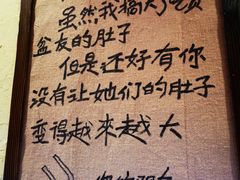 虽然我搞大了吃货
盆友的肚子
但是还好有你
没有让她们的肚子
变得越來越大